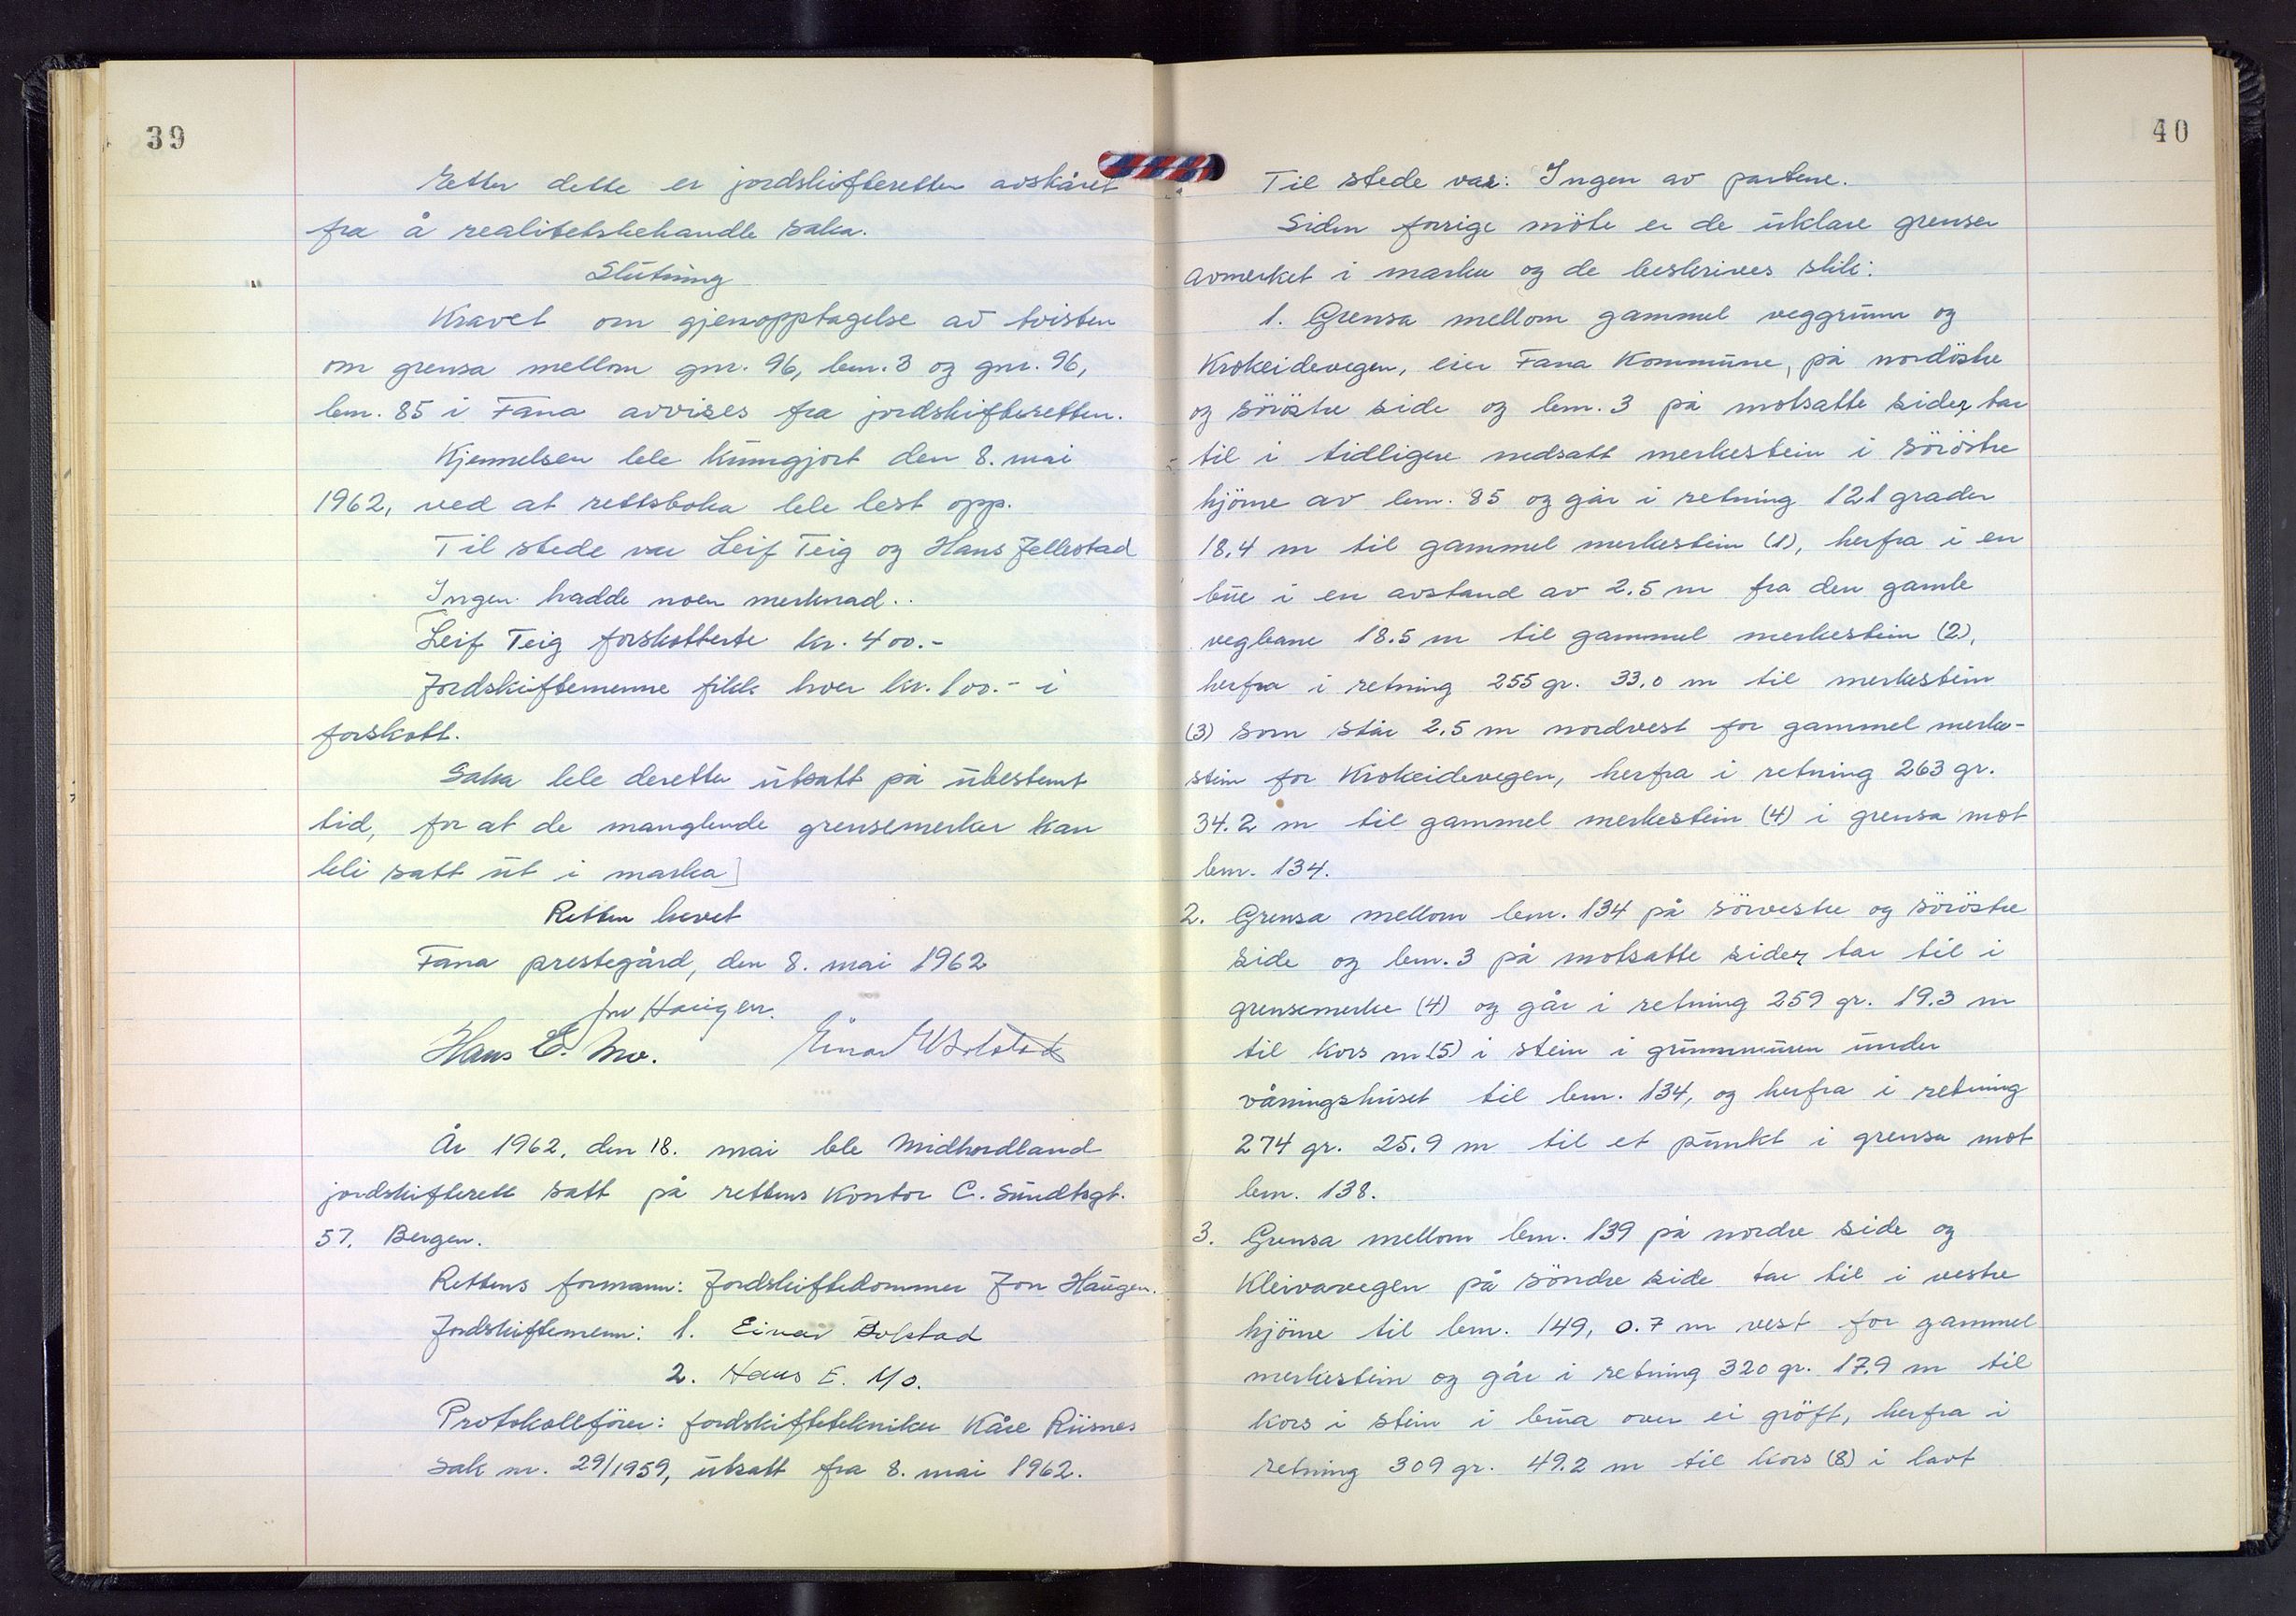 39
Etter dette er jordskifteretten avskåret
fra å realitetsbehandle saka.
Slutning
Kravet om gjenopptagelse av tvisten
om grensa mellom gnr. 96, bnr. 3 og gnr. 96,
bnr. 85 i Fana avvises fra jordskifteretten.
Kjennelsen ble kunngjort den 8. mai
1962, ved at rettsboka ble lest opp.
Til stede var Leif Teig og Hans Jellestad
Ingen hadde noen merknad.
Leif Teig forskotterte kr. 400.-
Jordskiftemenne fikk hver kr. 100.- i
forskott.
Saka ble deretter utsatt på ubestemt
tid, for at de manglende grensemerker kan
bli satt ut i marka]
Retten hevet
Fana prestegård, den 8. mai 1962
Jon Haugen.
Hans E. Mo. Einar Bolstad
År 1962, den 18. mai ble Midhordland
jordskifterett satt på rettens kontor C. Sundtsgt.
57. Bergen.
Rettens formann: Jordskiftedommer Jon Haugen.
Jordskiftemenn: 1. Einar Bolstad
2. Hans E. Mo.
Protokollförer: Jordskiftetekniker Kåre Riisnes
Sak nr. 29/1959, utsatt fra 8. mai 1962.
40
Til stede var: Ingen av partene.
Siden forrige möte er de uklare grenser
avmerket i marka og de beskrives slik:
1. Grensa mellom gammel veggrunn og
Krokeidevegen, eier Fana Kommune, på nordöstre
og söröstre side og bnr. 3 på motsatte sider tar
til i tidligere nedsatt merkestein i söröstre
hjörne av bnr. 85 og går i retning 121 grader
18,4 m til gammel merkestein (1), herfra i en
bue i en avstand av 2.5 m fra den gamle
vegbane 18.5 m til gammel merkestein (2),
herfra i retning 255 gr. 33.0 m til merkestein
(3) som står 2,5 m nordvest for gammel merke-
stein for Krokeidevegen, herfra i retning 263 gr.
34.2 m til gammel merkestein (4) i grensa mot
bnr. 134.
2. Grensa mellom bnr. 134 på sörvestre og söröstre
side og bnr. 3 på motsatte sider tar til i
grensemerke (4) og går i retning 259 gr. 19.3 m
til kors m (5) i stein i grunnmuren under
våningshuset til bnr. 134, og herfra i retning
274 gr. 25.9 m til et punkt i grensa mot
bnr. 138.
3. Grensa mellom bnr. 139 på nordre side og
Kleivavegen på söndre side tar til i vestre
hjörne til bnr. 149, 0.7 m vest for gammel
merkestein og går i retning 320 gr. 17.9 m til
kors i stein i bua over ei gröft, herfra i
retning 309 gr. 49.2 m til kors (8) i lavt